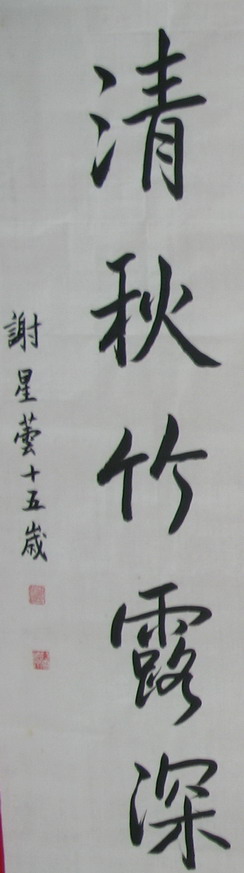 清秋竹露深
謝星蕓十五歲